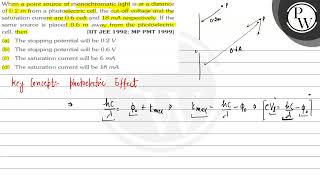 When a point source of monochromatic light is at a distance
of 0.2 m from a photoelectric cell, the cut-off voltage and the
saturation current are 0.6 volt and 18 mA respectively. If the
same source is placed 0.6 m away from the photoelectric
cell, then [IIT JEE 1992; MP PMT 1999]
(a) The stopping potential will be 0.2 V
(b) The stopping potential will be 0.6 V
(c) The saturation current will be 6 mA
(d) The saturation current will be 18 mA
P
0.2m
P
0.6m
PW
Key Concept: Photoelectric Effect
⇒ hc/λ = ϕ₀ + kmax ⇒ kmax = hc/λ - ϕ₀ ⇒ eV = hc/λ - ϕ₀